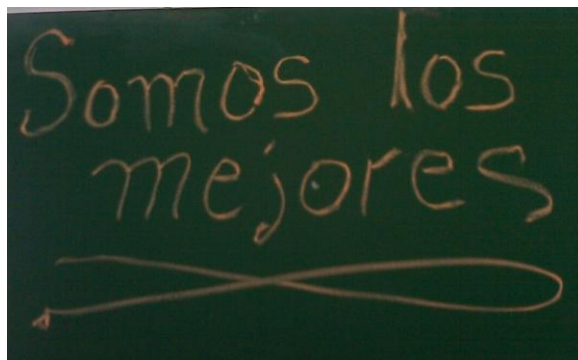 Somos los
mejores